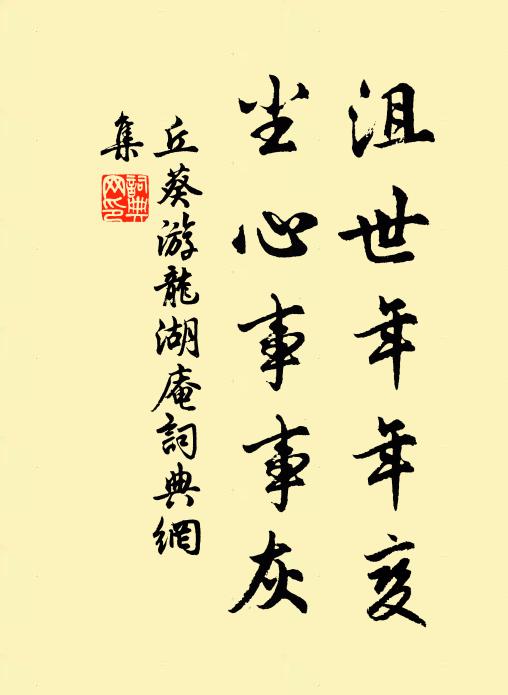 沮世年年变
尘心事事灰
丘葵游龍湖庵詞典網
集
詞典网印